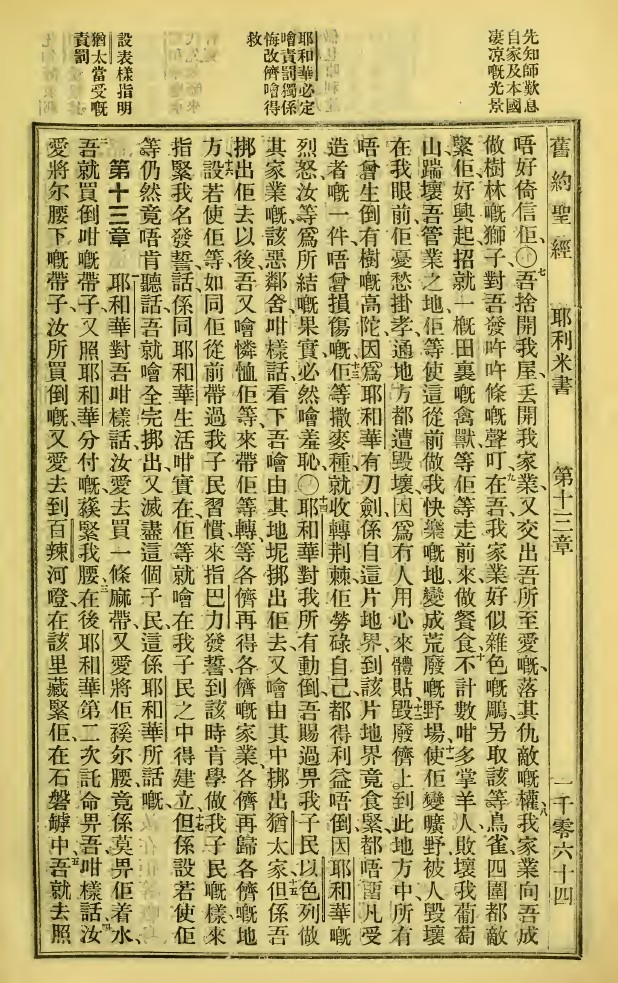 先知師歎息
自家及本國
凄凉嘅光景
耶和華必定
噲責罰獨係
悔改儕噲得
救
設表樣指明
猶太當受嘅
責罰
舊約聖經 耶利米書 第十二章 一千零六十四
唔好倚信佢、〇七吾捨開我屋、丟開我家業、又交出吾所至愛嘅、落其仇敵嘅權、八我家業向吾成
做樹林嘅獅子、對吾發吽吽條嘅聲叮、在吾九我家業好似雜色嘅鵰、另取該等鳥雀四圍都敵
緊佢、好興起招就一概田裏嘅禽獸等佢等走前來做餐食、十不計數咁多掌羊人敗壞我葡萄
山、踹壞吾管業之地、佢等使這從前做我快樂嘅地、變成荒廢嘅野場、十一使佢變曠野、被人毀壞
在我眼前佢憂愁掛孝、通地方都遭毀壞、因爲冇人用心來體貼、十二毀廢儕上到此地方中所有
唔曾生倒有樹嘅高陀、因爲耶和華有刀劍、係自這片地界到該片地界、竟食緊都唔留、凡受
造者嘅一件唔曾損傷嘅、十三佢等撒麥種就收轉荆棘、佢勞碌自己都得利益唔倒、因耶和華嘅
烈怒汝等爲所結嘅果實必然噲羞恥、〇十四耶和華對我所有動倒吾賜過畀我子民以色列做
其家業嘅該惡鄰舍咁樣話、看下吾噲由其地坭挷出佢去、又噲由其中挷出猶太家、十五但係吾
挷出佢去以後、吾又噲憐恤佢等、來帶佢等轉、等各儕再得各儕嘅家業、各儕再歸各儕嘅地
方、十六設若使佢等如同佢從前帶過我子民習慣來指巴力發誓、到該時肯學做我子民嘅樣來
指緊我名發誓話、係同耶和華生活咁實在、佢等就噲在我子民之中得建立、十七但係設若使佢
等仍然竟唔肯聽話、吾就噲全完挷出又滅盡這個子民、這係耶和華所話嘅、
第十三章 耶和華對吾咁樣話、汝愛去買一條麻帶、又愛將佢縘尔腰、竟係莫畀佢着水、
二吾就買倒咁嘅帶子、又照耶和華分付嘅縘緊我腰、三在後耶和華第二次託命畀吾咁樣話、四汝
愛將尔腰下嘅帶子、汝所買倒嘅、又愛去到百辣河、嶝在該里藏緊佢、在石磐罅中、五吾就去照